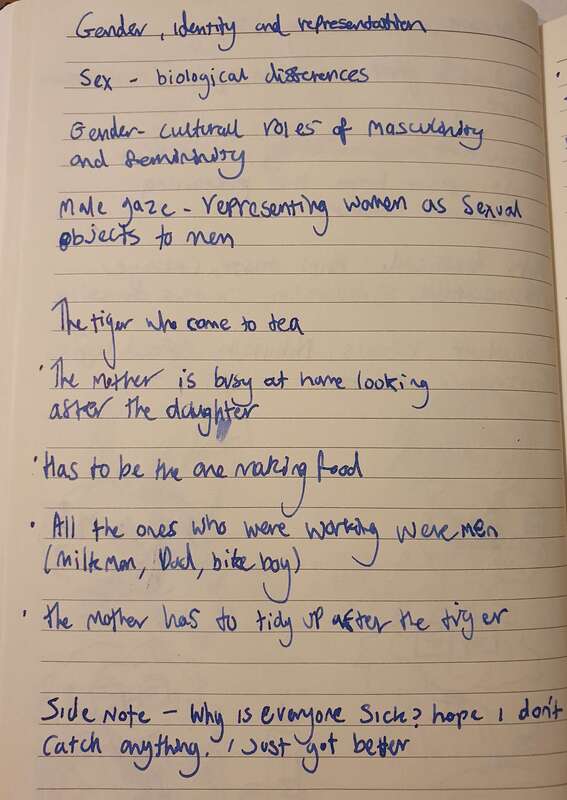 Gender, identity and representation
Sex - biological differences
Gender- cultural roles of masculinity
and femininity
Male gaze - representing women as sexual
objects to men
The tiger who came to tea
· The mother is busy at home looking
after the daughter
· Has to be the one making food
· All the ones who were working were men
(milkman, Dad, bike boy)
· The mother has to tidy up after the tiger
Side Note - Why is everyone sick? hope I don't
catch anything. I just got better